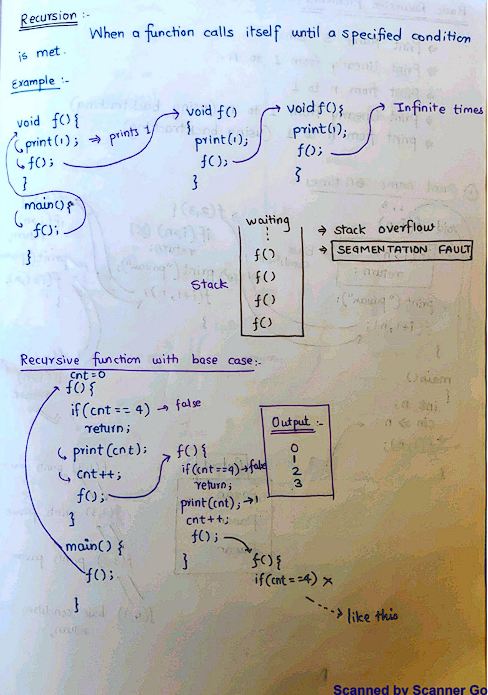 Recursion :-
When a function calls itself until a specified condition
is met.
Example :-
void f() {
print(1); ⇒ prints 1
f();
}
main() {
f();
}
void f()
{
print(1);
f();
}
void f() {
print(1);
f();
}
Infinite times
waiting
⋮
f()
f()
f()
f()
Stack
→ stack overflow
→ SEGMENTATION FAULT
Recursive function with base case:-
cnt = 0
f() {
if(cnt == 4) → false
return;
print(cnt);
cnt++;
f();
}
main() {
f();
}
f() {
if(cnt==4)→false
return;
print(cnt);→1
cnt++;
f();
}
f() {
if(cnt==4) ×
→ like this
Output :-
0
1
2
3
Scanned by Scanner Go